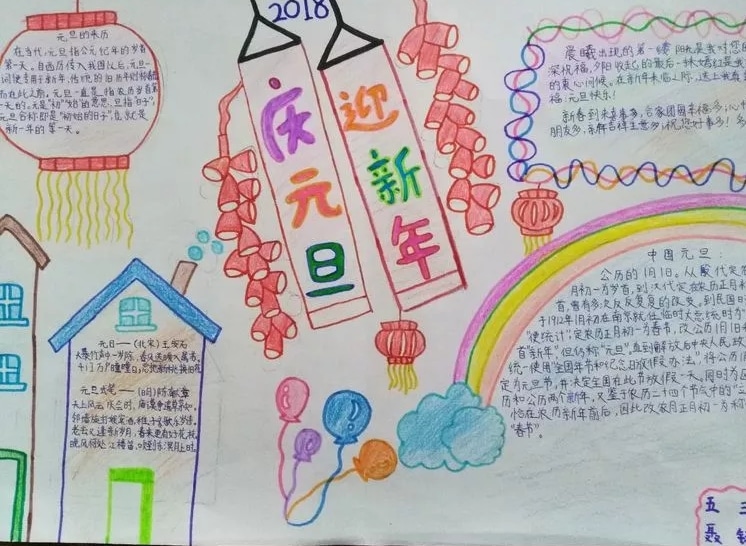 元旦的来历
在当代,元旦指公元纪年的岁首
第一天。自西历传入我国以后,元旦一
词便专用于新年,传统的旧历新年则称春节
而在此之前,元旦一直是指农历岁首第
一天的。元是"初""始"的意思,旦指"日子",
元旦合称即是"初始的日子",也就是
新一年的第一天。
2018
庆元旦
迎新年
晨曦出现的第一缕阳光是我对您的
深祝福,夕阳收起的最后一抹嫣红是我
的衷心问候。在新年来临之际,送上我真
福:元旦快乐!
新春到来喜来多,合家团圆幸福多,心
朋友多,亲亲吉祥生意多,祝您好事多!多
元日——(北宋)王安石
爆竹声中一岁除,春风送暖入屠苏。
千门万户曈曈日,总把新桃换旧符。
元旦试笔——(明)陈献章
天上风云庆会时,庙谟争遗草茅知。
邻墙旋打娱宾酒,稚子齐歌乐岁诗。
老去又逢新岁月,春来更有好花枝。
晚风何处江楼笛,吹到东溟月上时。
中国元旦:
公历的1月1日。从殷代定
月初一为岁首,到汉代定在农历正月初
首,曾有多次反反复复的改变,到民国
于1912年1月初在南京就任临时大总统时为
"便统计"定农历正月初一为春节,改公历1月1日
首"新年"但仍称"元旦",直到解放后中央人民政
统一使用"全国年节和纪念日放假办法",将公历1
定为元旦节,并决定全国在此节放假一天。同时为
历和公历两个新年,又鉴于农历二十四个节气中的"立
恰在农历新年前后,因此改农历正月初一为
"春节"。
五 三
聂